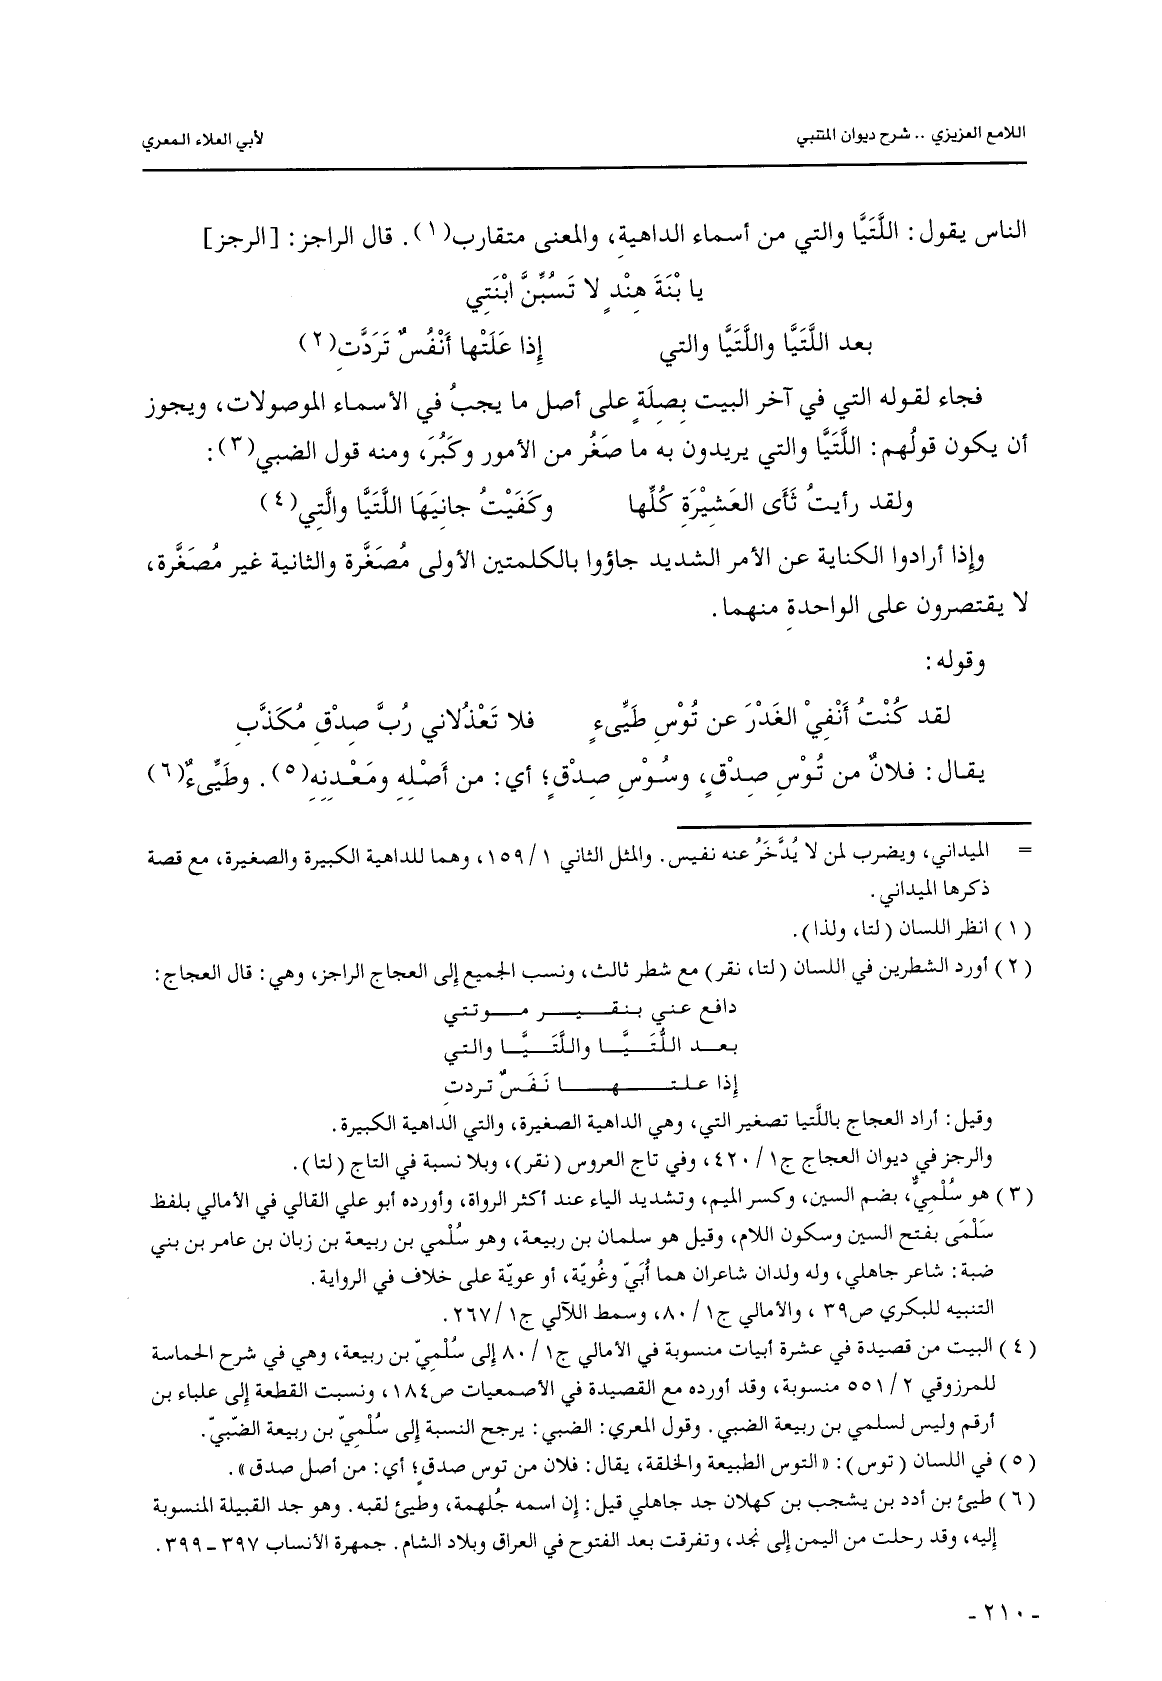 اللامع العزيزي .. شرح ديوان المتنبي لأبي العلاء المعري
الناس يقول: اللَّتَيَّا والتي من أسماء الداهيةِ، والمعنى متقارب(١). قال الراجز: [الرجز]
يا بْنَةَ هِنْدٍ لا تَسُبِّنَّ ابْنَتِي
بعد اللَّتَيَّا واللَّتَيَّا والتي إذا عَلَتْها أَنْفُسٌ تَرَدَّتِ(٢)
فجاء لقوله التي في آخر البيت بِصِلَةٍ على أصل ما يجبُ في الأسماء الموصولات، ويجوز
أن يكون قولُهم: اللَّتَيَّا والتي يريدون به ما صَغُر من الأمور وكَبُرَ، ومنه قول الضبي(٣):
ولقد رأيتُ ثَأَى العَشِيْرَةِ كُلِّها وكَفَيْتُ جانِيَهَا اللَّتَيَّا والَّتِي(٤)
وإذا أرادوا الكناية عن الأمر الشديد جاؤوا بالكلمتين الأولى مُصَغَّرة والثانية غير مُصَغَّرة،
لا يقتصرون على الواحدةِ منهما.
وقوله:
لقد كُنْتُ أَنْفِيْ الغَدْرَ عن تُوْسِ طَيِّىءٍ فلا تَعْذُلاني رُبَّ صِدْقٍ مُكَذَّبِ
يقال: فلانٌ من تُوْسِ صِدْقٍ، وسُوْسِ صِدْقٍ؛ أي: من أَصْلِهِ ومَعْدِنِهِ(٥). وطَيِّىءٌ(٦)
= الميداني، ويضرب لمن لا يُدَّخَرُ عنه نفيس. والمثل الثاني ١/ ١٥٩، وهما للداهية الكبيرة والصغيرة، مع قصة
ذكرها الميداني.
(١) انظر اللسان (لتا، ولذا).
(٢) أورد الشطرين في اللسان (لتا، نقر) مع شطر ثالث، ونسب الجميع إلى العجاج الراجز، وهي: قال العجاج:
دافع عني بنقـــيـــر مـــوتتي
بعـــد اللُّتَـــيَّـــا واللَّتَـــيَّـــا والتي
إذا علتـــهـــا نَفَسٌ تردتِ
وقيل: أراد العجاج باللَّتيا تصغير التي، وهي الداهية الصغيرة، والتي الداهية الكبيرة.
والرجز في ديوان العجاج ج١/ ٤٢٠، وفي تاج العروس (نقر)، وبلا نسبة في التاج (لتا).
(٣) هو سُلْمِيٌّ، بضم السين، وكسر الميم، وتشديد الياء عند أكثر الرواة، وأورده أبو علي القالي في الأمالي بلفظ
سَلْمَى بفتح السين وسكون اللام، وقيل هو سلمان بن ربيعة، وهو سُلْمي بن ربيعة بن زبان بن عامر بن بني
ضبة: شاعر جاهلي، وله ولدان شاعران هما أُبَيّ وغُويّة، أو عويّة على خلاف في الرواية.
التنبيه للبكري ص٣٩، والأمالي ج١/ ٨٠، وسمط اللآلي ج١/ ٢٦٧.
(٤) البيت من قصيدة في عشرة أبيات منسوبة في الأمالي ج١/ ٨٠ إلى سُلْمِيّ بن ربيعة، وهي في شرح الحماسة
للمرزوقي ٢/ ٥٥١ منسوبة، وقد أورده مع القصيدة في الأصمعيات ص١٨٤، ونسبت القطعة إلى علباء بن
أرقم وليس لسلمي بن ربيعة الضبي. وقول المعري: الضبي: يرجح النسبة إلى سُلْمِيّ بن ربيعة الضّبّيّ.
(٥) في اللسان (توس): «التوس الطبيعة والخلقة، يقال: فلان من توس صدقٍ؛ أي: من أصل صدق».
(٦) طيئ بن أدد بن يشجب بن كهلان جد جاهلي قيل: إن اسمه جُلهمة، وطيئ لقبه. وهو جد القبيلة المنسوبة
إليه، وقد رحلت من اليمن إلى نجد، وتفرقت بعد الفتوح في العراق وبلاد الشام. جمهرة الأنساب ٣٩٧ــ٣٩٩.
- ٢١٠ -